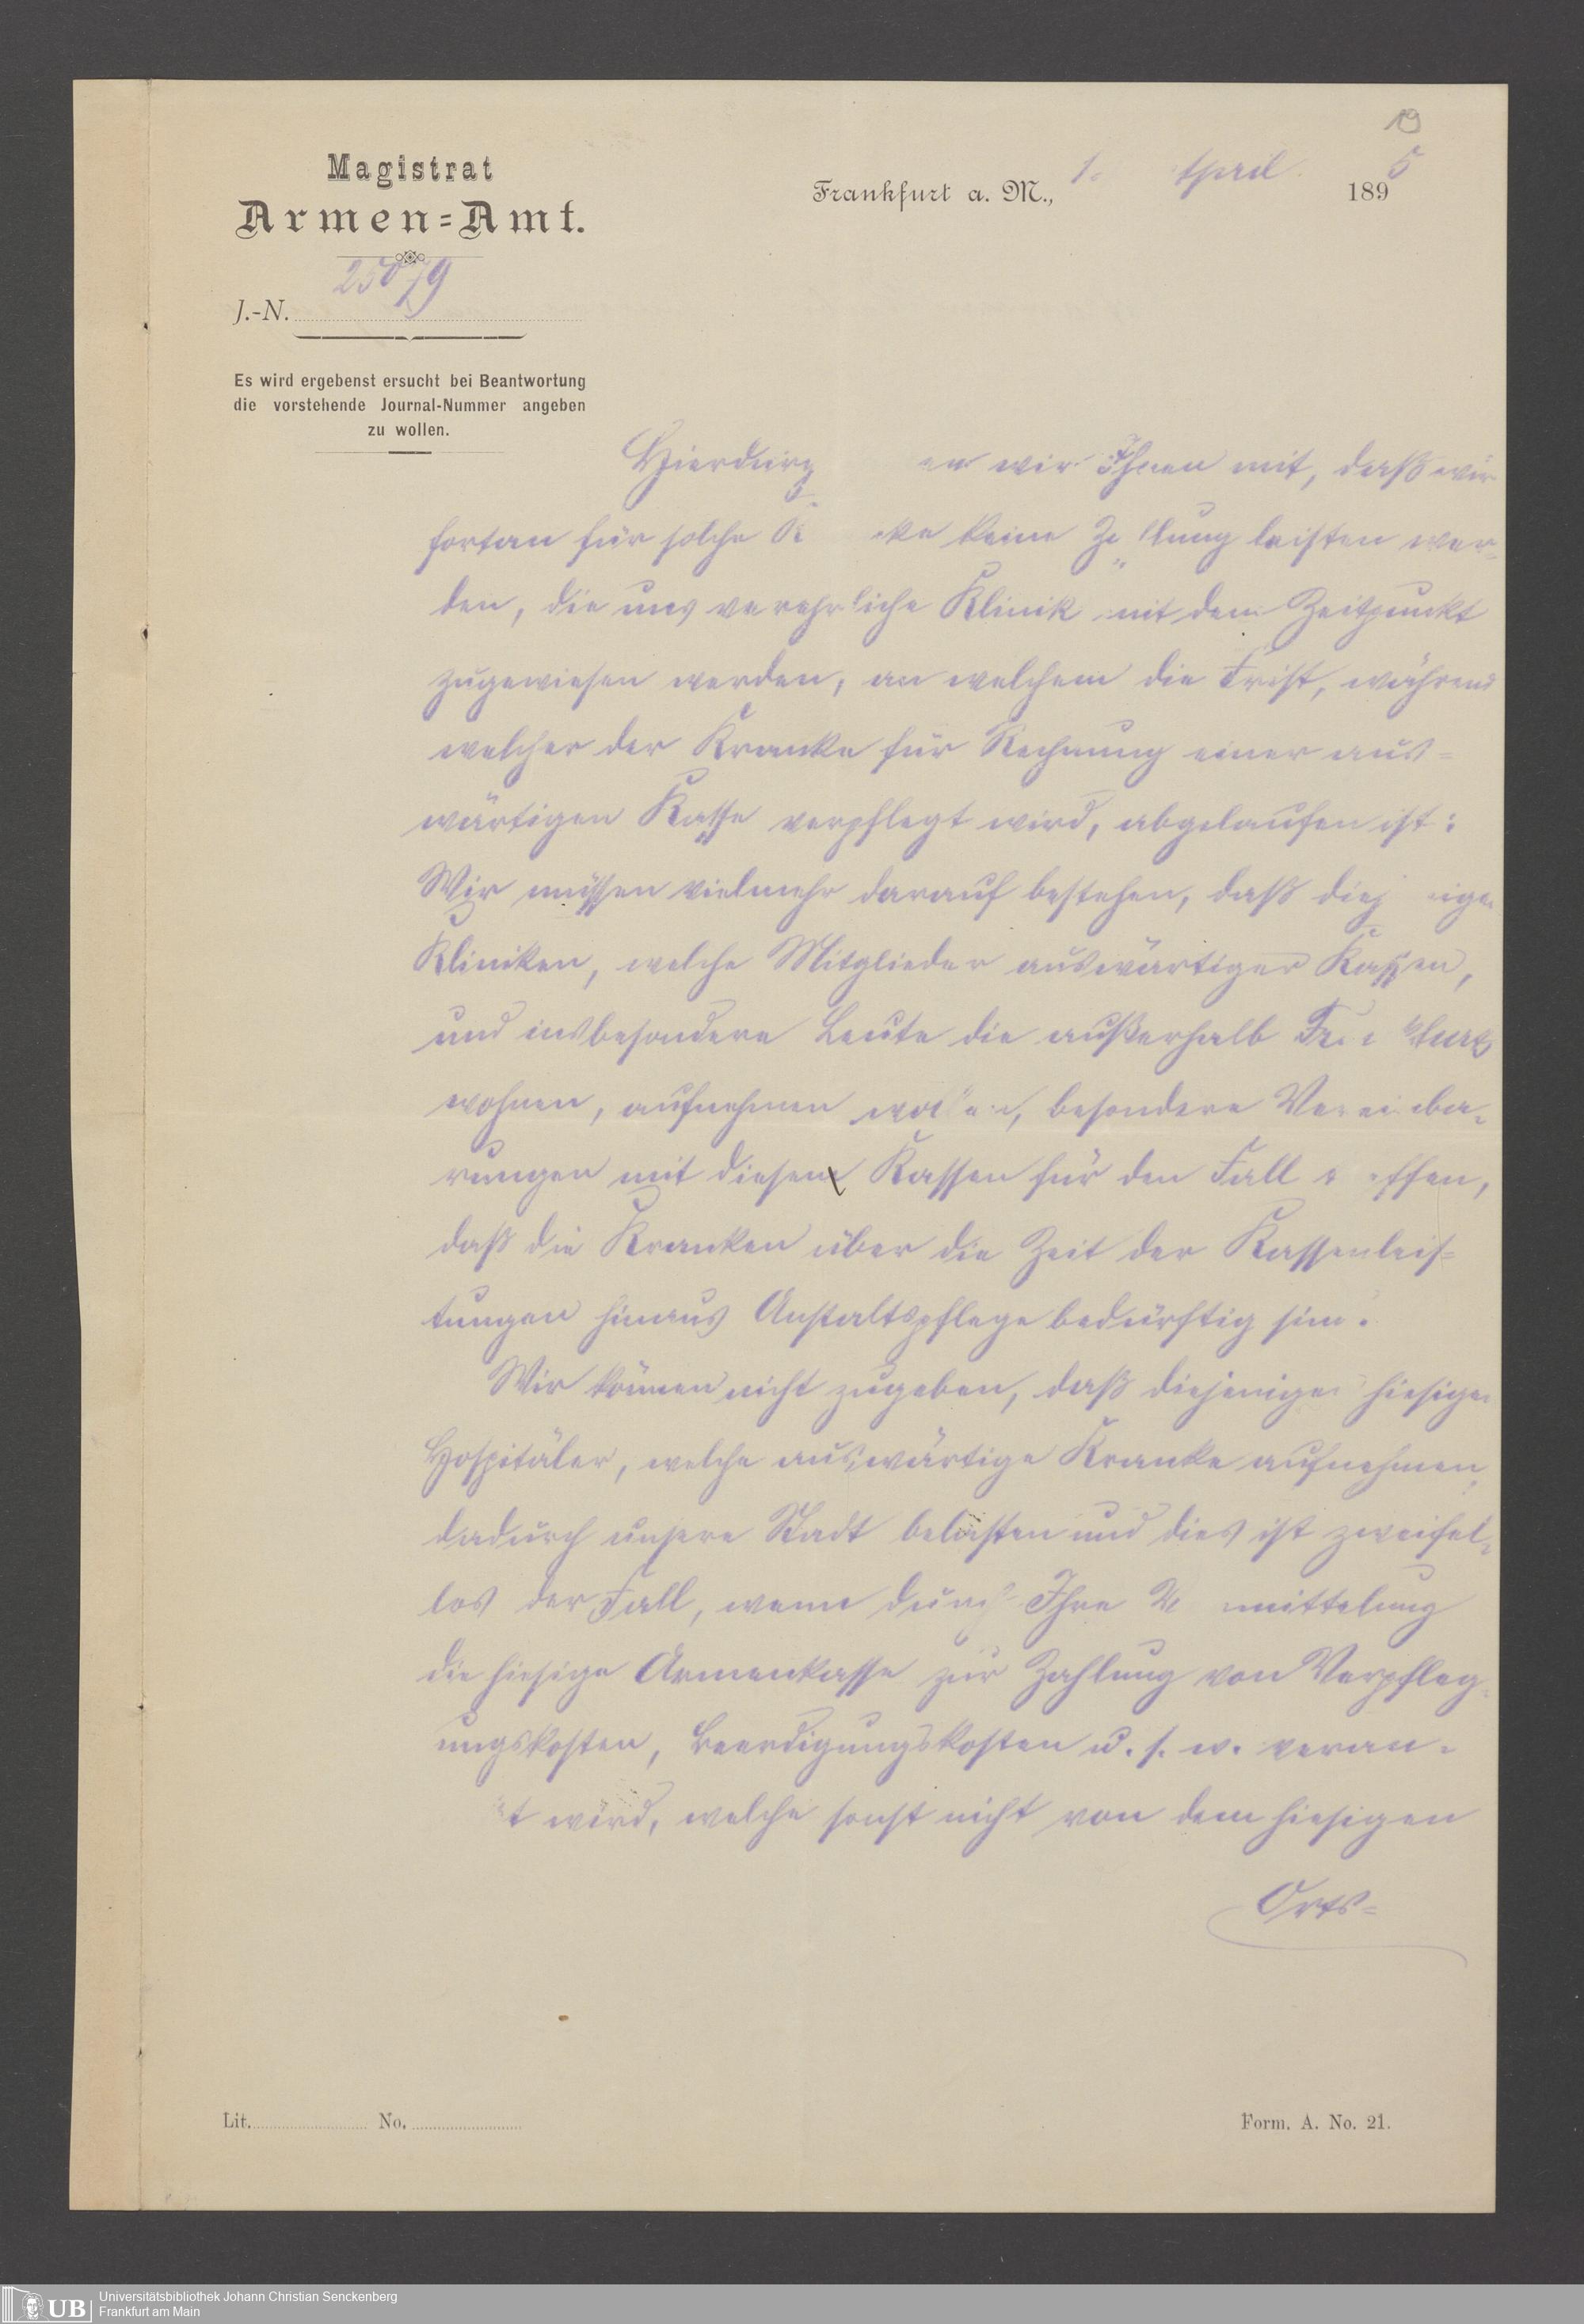 19
Magistrat
Armen=Amt.
Frankfurt a. M., 1. April 1895
J.-N. 25079
Es wird ergebenst ersucht bei Beantwortung
die vorstehende Journal-Nummer angeben
zu wollen.
wir Ihnen mit, daß wir
fortan für solche keine leisten wer-
den, die uns verehrliche Klinik mit dem Zeitpunkt
zugewiesen werden, an welchem die Frist, während
welcher der Kranke für Rechnung einer aus=
wärtigen Kasse verpflegt wird, abgelaufen ist.
Wir müssen vielmehr darauf bestehen, daß
Kliniken, welche Mitglieder auswärtiger Kassen,
und insbesondere Leute die außerhalb
wohnen, aufnehmen wollen, besondere Vereinba-
rungen mit diesen Kassen für den Fall
daß die Kranken über die Zeit der Kassenleis=
tungen hinaus Anstaltspflege bedürftig sind.
Wir können nicht zugeben, daß diejenigen hiesigen
Hospitäler, welche auswärtige Kranke aufnehmen,
dadurch unsere Stadt belasten und dies ist zweifel-
los der Fall, wenn durch Ihre
die hiesige Armenkasse zur Zahlung von Verpfleg-
ungskosten, Beerdigungskosten u. s. w. veran-
wird, welche sonst nicht von dem hiesigen
Orts=
Lit. No.
Form. A. No. 21.
UB
Universitätsbibliothek Johann Christian Senckenberg
Frankfurt am Main